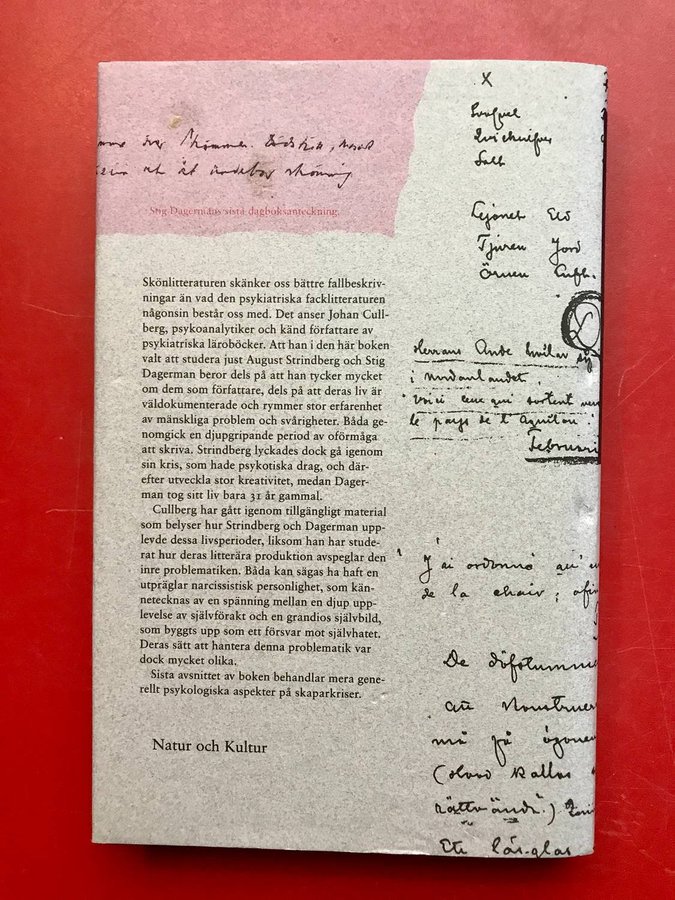 över
Stig Dagermans sista dagboksanteckning.
Skönlitteraturen skänker oss bättre fallbeskriv-
ningar än vad den psykiatriska facklitteraturen
någonsin består oss med. Det anser Johan Cull-
berg, psykoanalytiker och känd författare av
psykiatriska läroböcker. Att han i den här boken
valt att studera just August Strindberg och Stig
Dagerman beror dels på att han tycker mycket
om dem som författare, dels på att deras liv är
väldokumenterade och rymmer stor erfarenhet
av mänskliga problem och svårigheter. Båda ge-
nomgick en djupgripande period av oförmåga
att skriva. Strindberg lyckades dock gå igenom
sin kris, som hade psykotiska drag, och där-
efter utveckla stor kreativitet, medan Dager-
man tog sitt liv bara 31 år gammal.
Cullberg har gått igenom tillgängligt material
som belyser hur Strindberg och Dagerman upp-
levde dessa livsperioder, liksom han har stude-
rat hur deras litterära produktion avspeglar den
inre problematiken. Båda kan sägas ha haft en
utpräglar narcissistisk personlighet, som kän-
netecknas av en spänning mellan en djup upp-
levelse av självförakt och en grandios självbild,
som byggts upp som ett försvar mot självhatet.
Deras sätt att hantera denna problematik var
dock mycket olika.
Sista avsnittet av boken behandlar mera gene-
rellt psykologiska aspekter på skaparkriser.
Natur och Kultur
X
Svafvel
Qvicksilfver
Salt
Lejonet Eld
Tjuren Jord
Örnen Luft.
Herrans Ande hvilar
i nordanlandet.
Voici ceux qui sortent
le pays de l'Aquilon
Februari
J'ai ordonné
de la chair; afin
De döfstumma
att
må på ögonen
(hvad kallas
Ett läs-glas